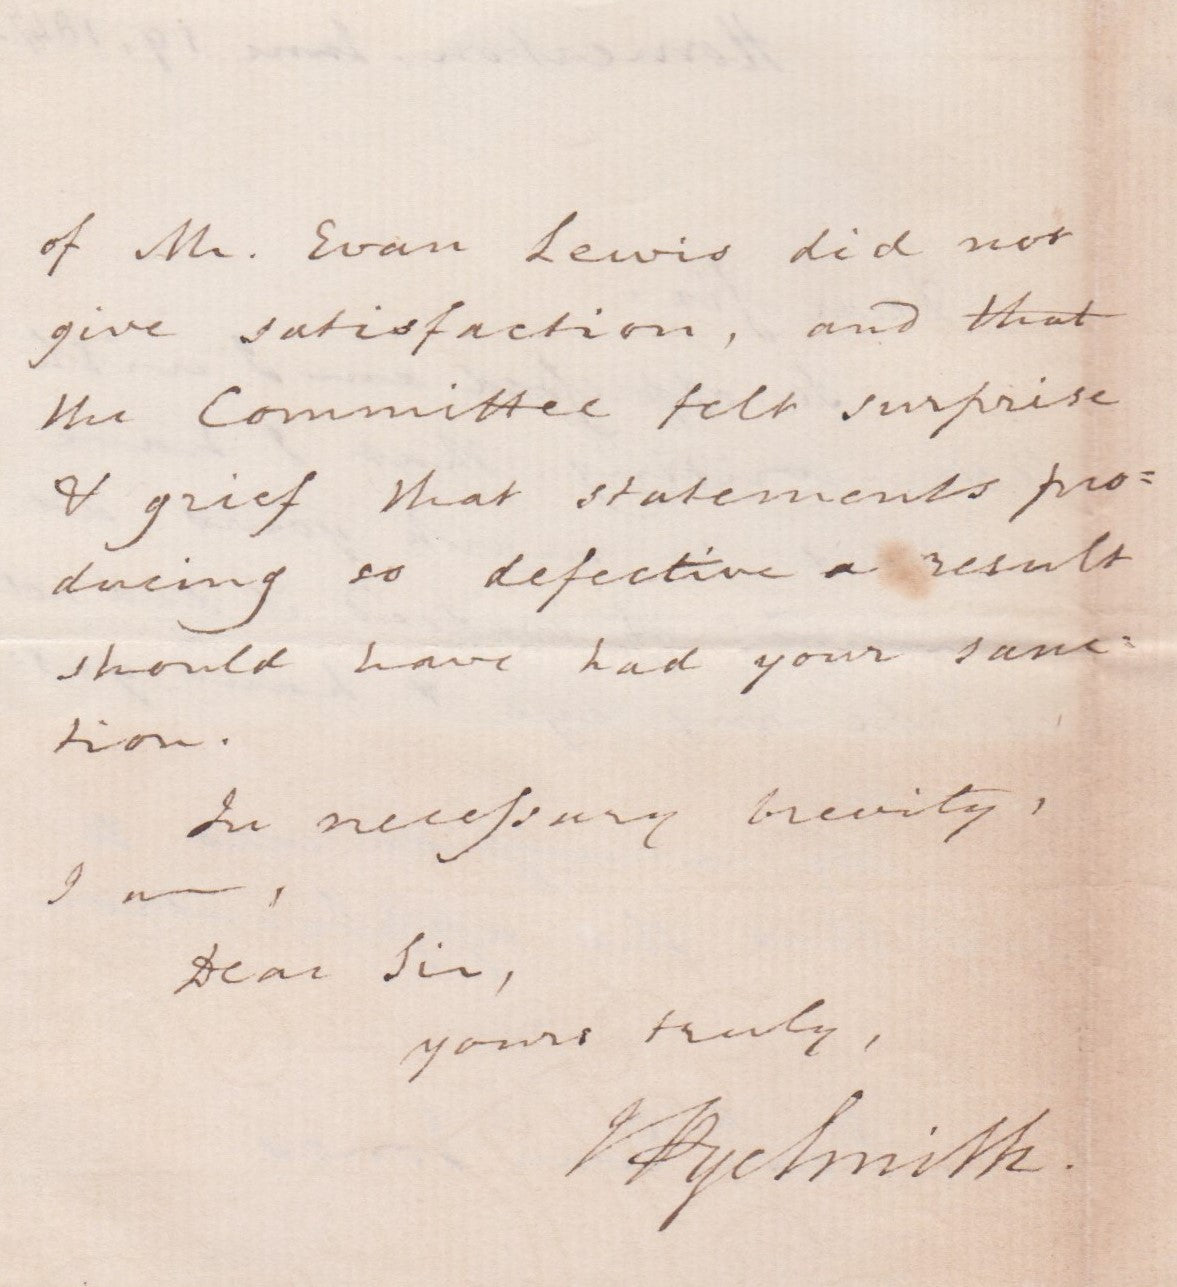 of Mr. Evan Lewis did not
give satisfaction, and that
the Committee felt surprise
& grief that statements pro=
ducing so defective a result
should have had your sanc=
tion.
In necessary brevity,
I am,
Dear Sir,
yours truly,
J Pye Smith.